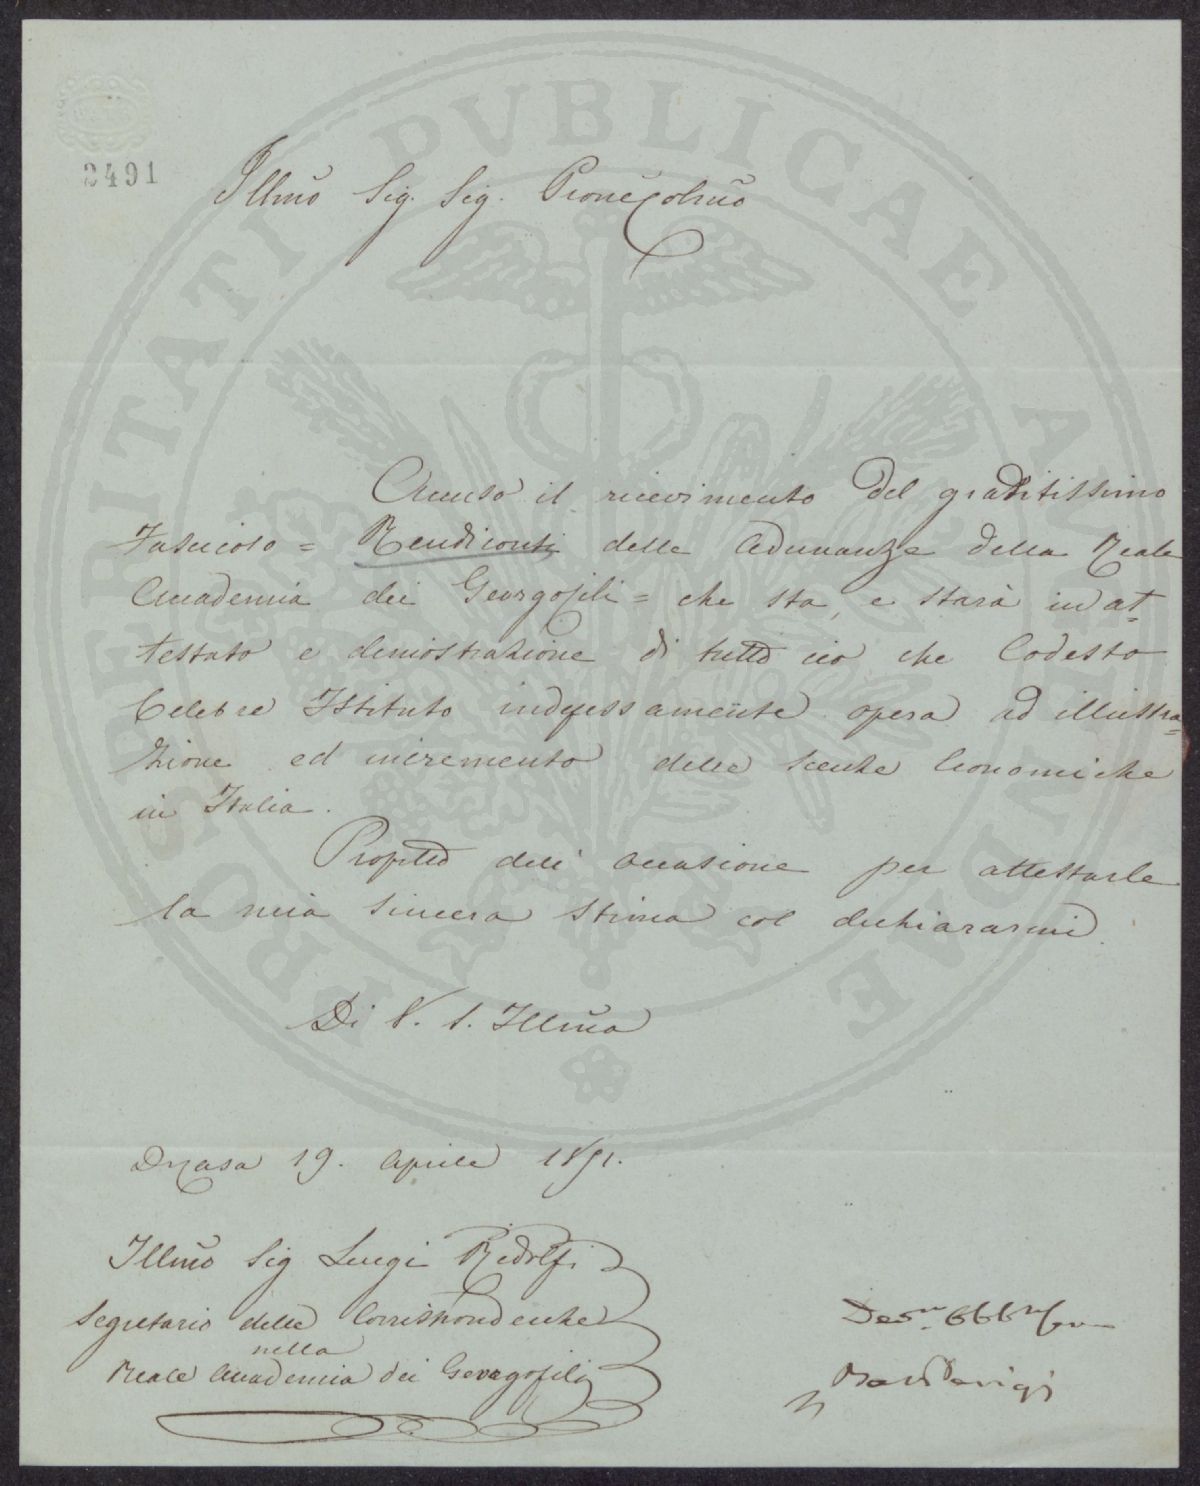 PROSPERITATI PVBLICAE AVGENDAE
2491
Illmo Sig. Sig. Prone Colmo
Accuso il ricevimento del graditissimo
Fascicolo = Rendiconti delle Adunanze della Reale
Accademia dei Georgofili = che sta, e starà in at=
testato e dimostrazione di tutto ciò che Codesto
Celebre Istituto indefessamente opera ad illustra=
zione ed incremento delle Scenze Economiche
in Italia.
Profitto dell' occasione per attestarle
la mia sincera Stima col dichiararmi
Di V. S. Illma
19. Aprile 1851.
Illmo Sig Luigi Ridolfi
Segretario delle Corrispondenze
nella
Reale Accademia dei Georgofili